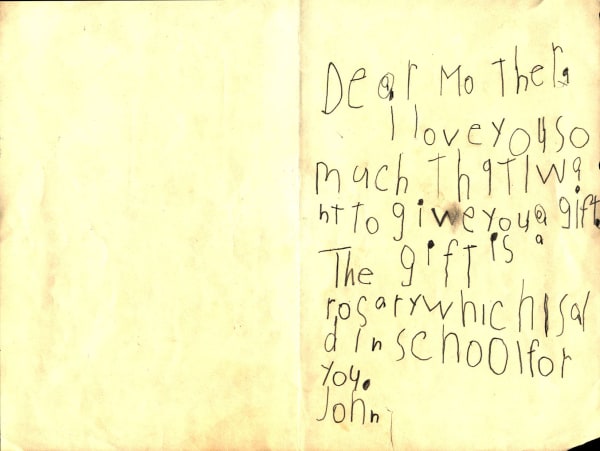 Dear Mother,
I love you so
much that I wa
nt to give you a gift.
The gift is a
rosary which I sai
d in school for
you.
John